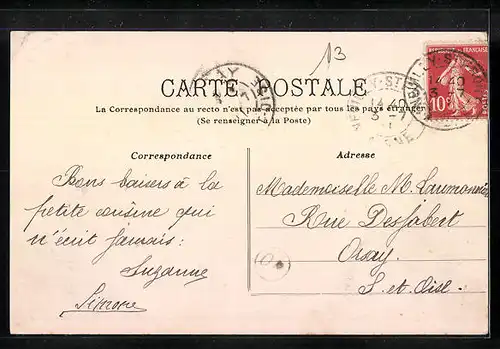 13
CARTE POSTALE
La Correspondance au recto n'est pas acceptée par tous les pays étrangers
(Se renseigner à la Poste)
Correspondance
Adresse
Bons baisers à la
petite cousine qui
n'écrit jamais :
Suzanne
Simone
Mademoiselle M.
Rue Desjobert
Orsay
S. et Oise
10